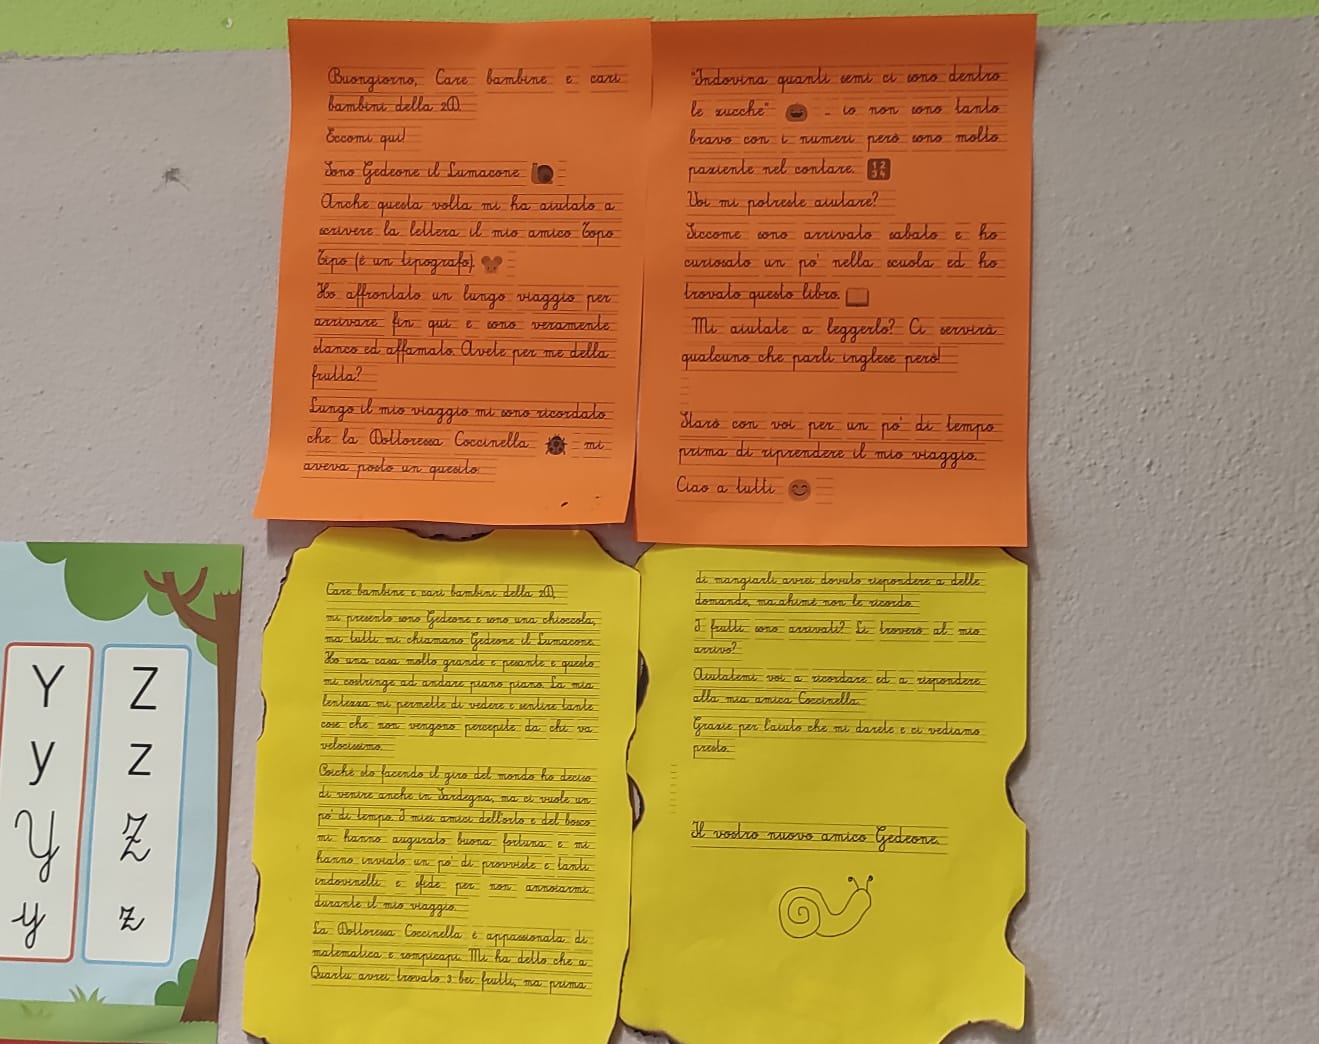 Buongiorno, Care bambine e cari
bambini della 2D.
Eccomi qui!
Sono Gedeone il Lumacone
Anche questa volta mi ha aiutato a
scrivere la lettera il mio amico Topo
Tipo (è un tipografo).
Ho affrontato un lungo viaggio per
arrivare fin qui e sono veramente
stanco ed affamato. Avete per me della
frutta?
Lungo il mio viaggio mi sono ricordato
che la Dottoressa Coccinella mi
aveva posto un quesito:
"Indovina quanti semi ci sono dentro
le zucche" - io non sono tanto
bravo con i numeri però sono molto
paziente nel contare. 1 2 3 4
Voi mi potreste aiutare?
Siccome sono arrivato sabato e ho
curiosato un po' nella scuola ed ho
trovato questo libro.
Mi aiutate a leggerlo? Ci servirà
qualcuno che parli inglese però!
Starò con voi per un po' di tempo
prima di riprendere il mio viaggio.
Ciao a tutti
Care bambine e cari bambini della 2D,
mi presento sono Gedeone e sono una chiocciola,
ma tutti mi chiamano Gedeone il Lumacone.
Ho una casa molto grande e pesante e questo
mi costringe ad andare piano piano. La mia
lentezza mi permette di vedere e sentire tante
cose che non vengono percepite da chi va
velocissimo.
Poiché sto facendo il giro del mondo ho deciso
di venire anche in Sardegna, ma ci vuole un
po' di tempo. I miei amici dell'orto e del bosco
mi hanno augurato buona fortuna e mi
hanno inviato un po' di provviste e tanti
indovinelli e sfide per non annoiarmi
durante il mio viaggio.
La Dottoressa Coccinella è appassionata di
matematica e rompicapi. Mi ha detto che a
Quartu avrei trovato 3 bei frutti, ma prima
di mangiarli avrei dovuto rispondere a delle
domande, ma ahimé non le ricordo.
I frutti sono arrivati? Li troverò al mio
arrivo?
Aiutatemi voi a ricordare ed a rispondere
alla mia amica Coccinella.
Grazie per l'aiuto che mi darete e ci vediamo
presto.
Il vostro nuovo amico Gedeone.
Y Z
y z
Y Z
y z